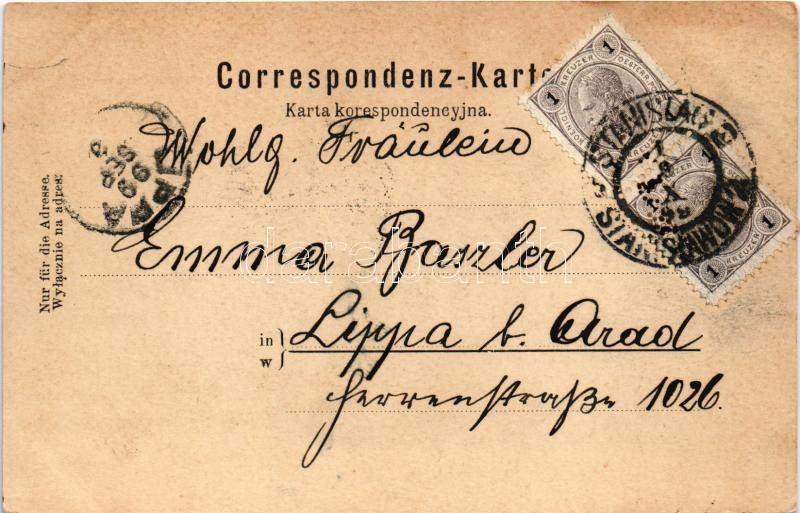 Correspondenz-Karte
Karta korespondencyjna.
Wohlg. Fräulein
Emma Baszler
in
w
Lippa b. Arad
Herrenstraße 1026.
Nur für die Adresse.
Wyłącznie na adres.
LIPPA
99
SEP
STANISLAU 2
STANISŁAWÓW 2
1
KREUZER
1
1
1
darabanth